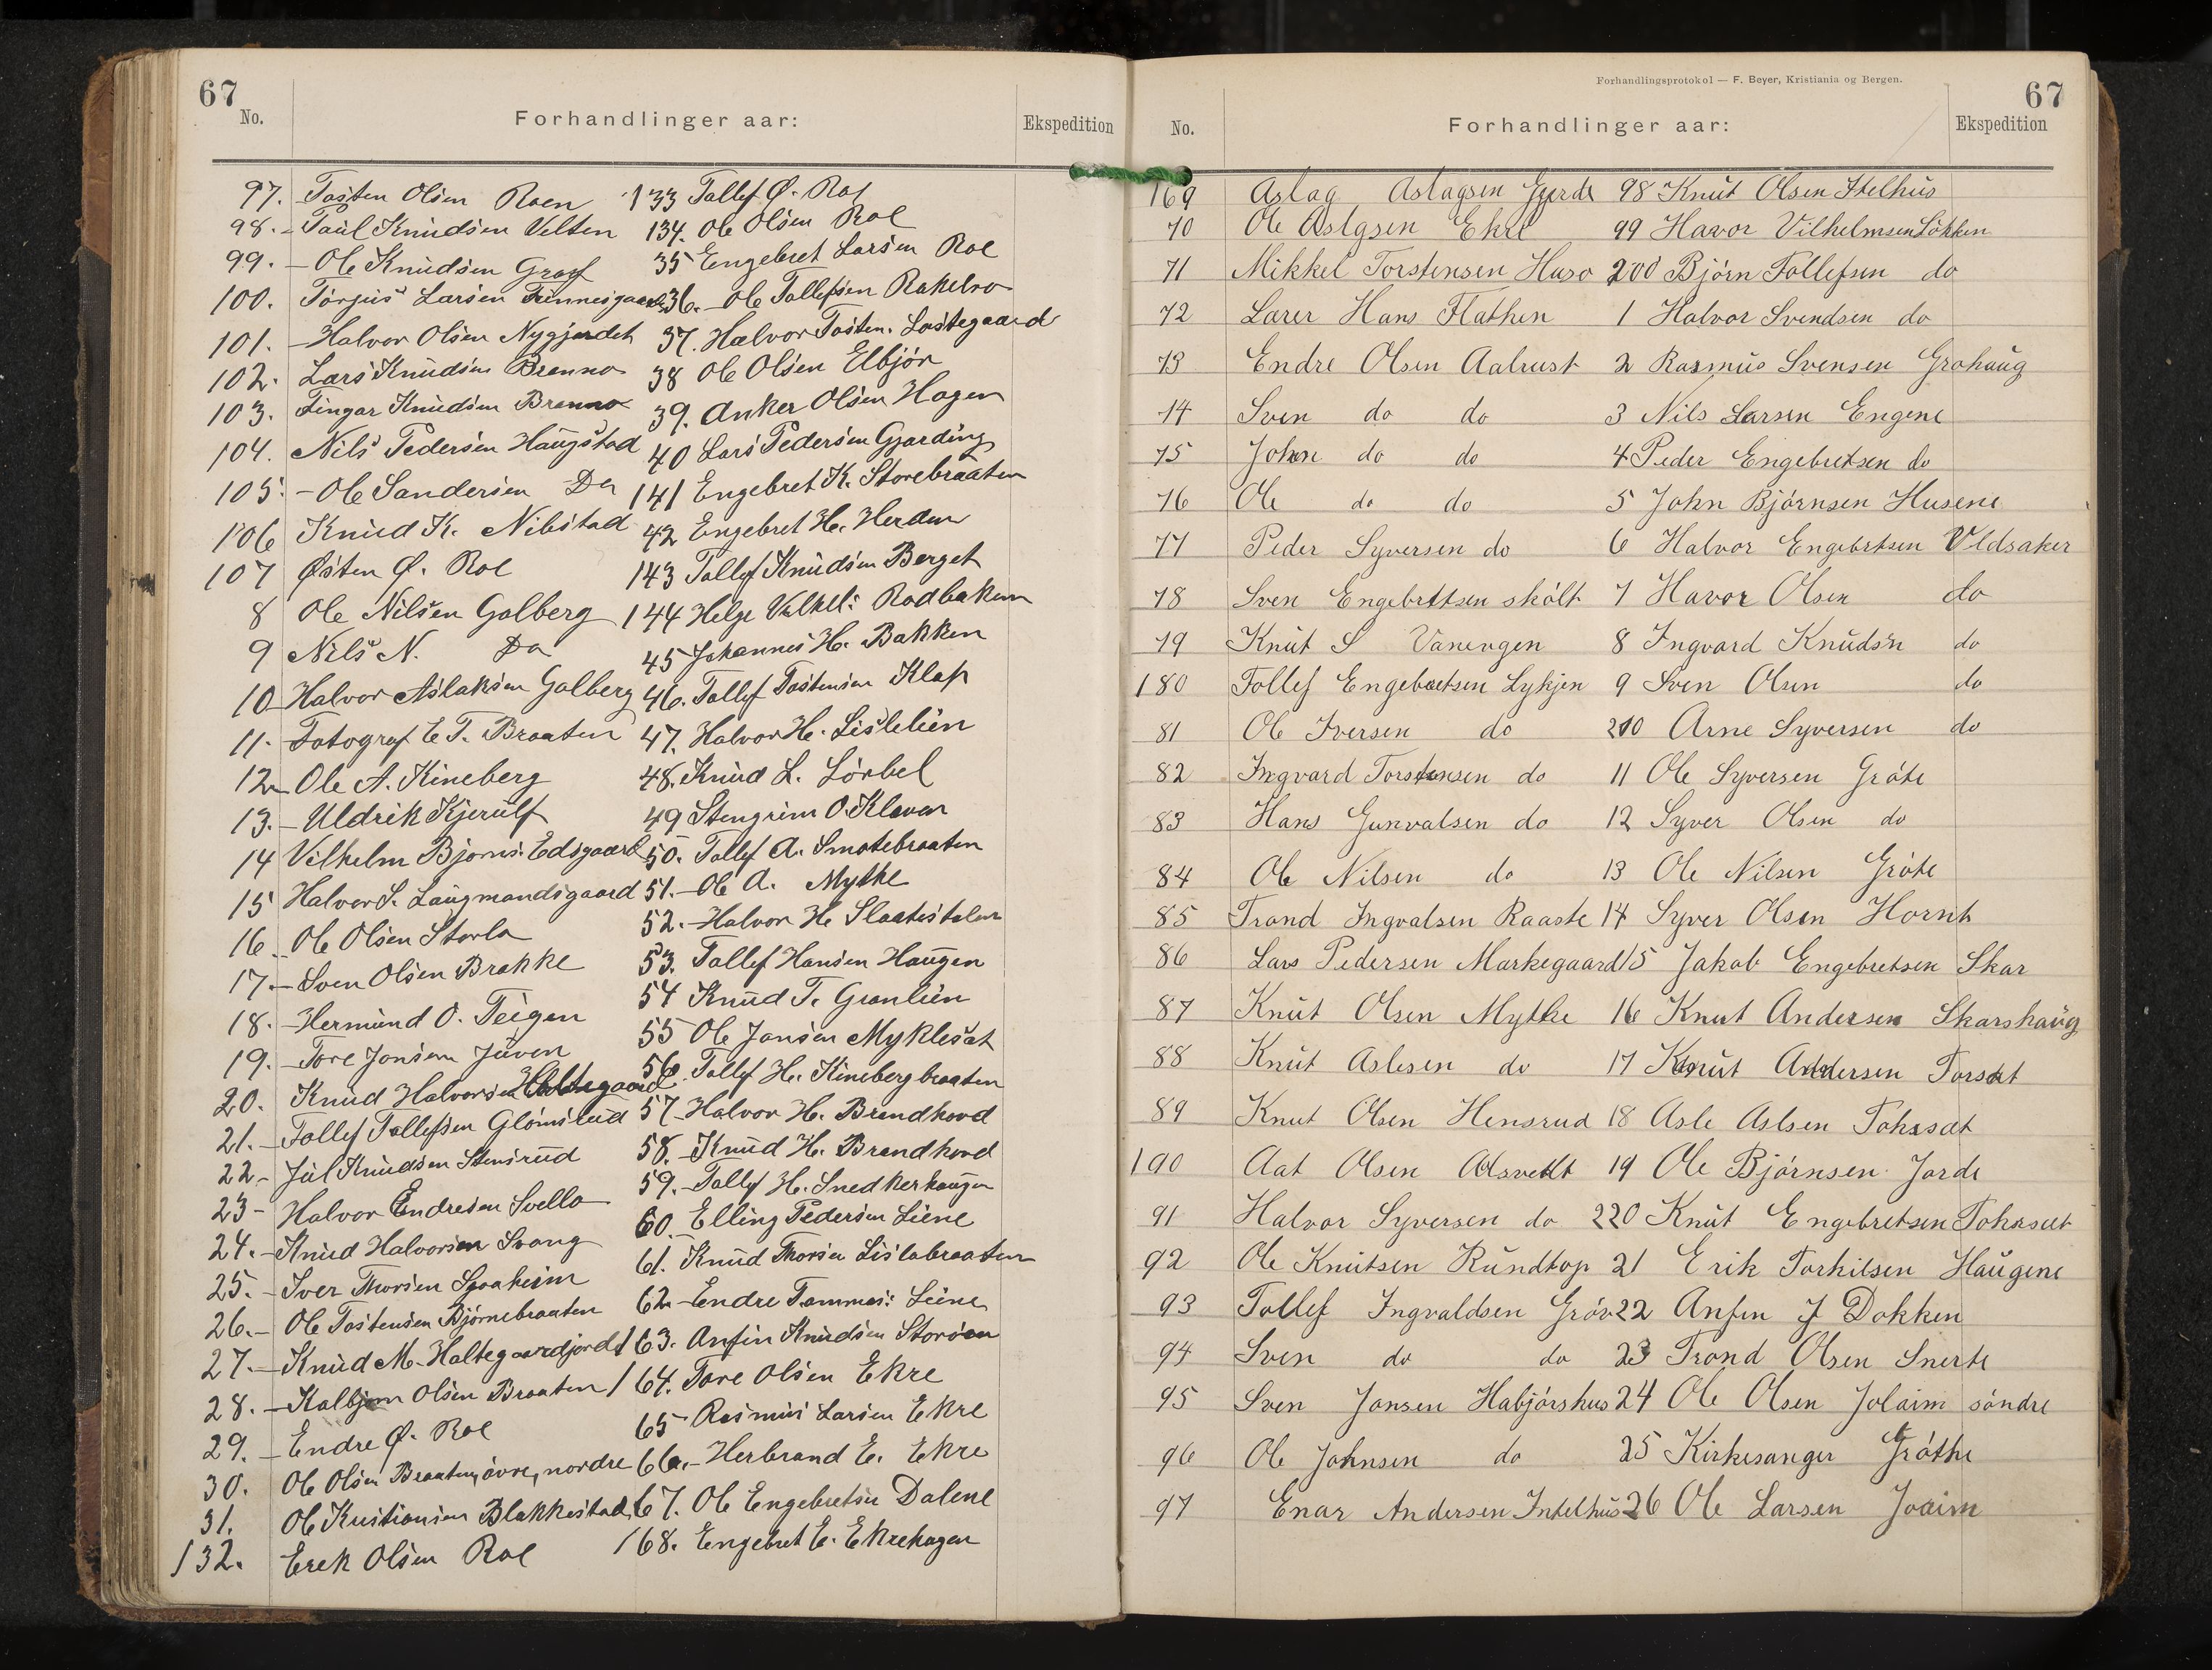 67
No.
Forhandlinger aar:
Ekspedition
97. Tosten Olsen Roen
98. - Paul Knudsen Velten
99. - Ole Knudsen Graff
100. Torjus Larsen Finnesgaard
101. - Halvor Olsen Nygjerdet
102. Lars Knudsen Brenno
103. Lingar Knudsen Brenno
104. Nils Pedersen Haugstad
105. - Ole Sandersen Do
106 Knud K. Nibstad
107 Østen Ø. Roe
8 Ole Nilsen Golberg
9 Nils N. Do
10 Halvor Aslaksen Golberg
11. Fotograf E T. Braaten
12. Ole A. Kineberg
13. - Uldrik Kjerulf
14 Vilhelm Bjorns. Edsgaard
15 Halvor S. Laugmandsgaard
16. Ole Olsen Storla
17. - Sven Olsen Brakke
18. - Hermund O. Teigen
19. - Tore Jonsen Juven
20. Knud Halvorsen Haltegaard
21. - Tollef Tollefsen Glomsrud
22 - Jul Knudsen Stensrud
23 - Halvor Endresen Svello
24. - Knud Halvorsen Svang
25. - Iver Thorsen Sgaaheim
26. - Ole Tostensen Bjørnebraaten
27. - Knud M. Haltegaardjordet
28. - Kolbjørn Olsen Braaten
29. - Endre Ø. Roe
30. Ole Olsen Braaten, øvre, nordre
31. Ole Kristiansen Blakkestad
132. Erek Olsen Roe
133 Tollef Ø. Roe
134. Ole Olsen Roe
35 Engebret Larsen Roe
36. - Ole Tollefsen Rakelvo
37. Halvor Tosten. Lostegaard
38 Ole Olsen Elbjør
39. Anker Olsen Hagen
40 Lars Pedersen Gjarding
141 Engebret K. Storebraaten
42 Engebret H. Herdem
143 Tollef Knudsen Berget
144 Helge Vilhel: Rodbakken
45 Johannes H. Bakken
46. Tollef Tostensen Klop
47. Halvor H. Lislelien
48. Knud L. Lørbel
49 Stengrim O. Kleven
50. Tollef A. Smotebraaten
51. - Ole A. Mythe
52. - Halvor H. Slaatestolen
53. Tollef Hansen Haugen
54 Knud T. Granlien
55 Ole Jonsen Myklesat
56. Tollef H. Kinebergbraaten
57. Halvor H. Brendhovd
58. - Knud H. Brendhovd
59. - Tollef H. Snedkerhaugen
60. Elling Pedersen Liene
61. Knud Thorsen Lislabraaten
62 - Endre Tommes: Liene
163. Anfin Knudsen Storøen
164. Tore Olsen Ekre
65 Rasmus Larsen Ekre
66. - Herbrand E. Ekre
67. Ole Engebretsen Dalene
168. Engebret E. Ekrehagen
Forhandlingsprotokol — F. Beyer, Kristiania og Bergen.
67
No.
Forhandlinger aar:
Ekspedition
169 Aslag Aslagsen Gjerde
70 Ole Aslgsen Ekre
71 Mikkel Torstensen Huso
72 Lærer Hans Flathen
73 Endre Olsen Aalrust
74 Sven do do
75 John do do
76 Ole do do
77 Peder Syversen do
78 Sven Engebretsen skølt
79 Knut S Vanengen
180 Tollef Engebretsen Lykjen
81 Ole Iversen do
82 Ingvard Torstensen do
83 Hans Gunvalsen do
84 Ole Nilsen do
85 Trond Ingvalsen Raaste
86 Lars Pedersen Markegaard
87 Knut Olsen Mythe
88 Knut Aslesen do
89 Knut Olsen Hensrud
190 Aat Olsen Alsvedt
91 Halvor Syversen do
92 Ole Knutsen Rundtop
93 Tollef Ingvaldsen Grøv
94 Sven do do
95 Sven Jonsen Habjørshus
96 Ole Johnsen do
97 Enar Andersen Intelhus
98 Knut Olsen Itelhus
99 Havor Vilhelmsen Løkken
200 Bjørn Tollefsen do
1 Halvor Svendsen do
2 Rasmus Svensen Grohaug
3 Nils Larsen Engene
4 Peder Engebretsen do
5 John Bjørnsen Husene
6 Halvor Engebretsen Vldsaker
7 Havor Olsen do
8 Ingvard Knudsn do
9 Sven Olsen do
210 Arne Syversen do
11 Ole Syversen Grøte
12 Syver Olsen do
13 Ole Nilsen Grøte
14 Syver Olsen Hornt
15 Jakob Engebretsen Skar
16 Knut Andersen Skarshaug
17 Knut Andersen Torsæt
18 Asle Aslsen Tohssæt
19 Ole Bjørnsen Jorde
220 Knut Engebretsen Tohrsæt
21 Erik Torkilsen Haugene
22 Anfin J Dokken
23 Trond Olsen Snerte
24 Ole Olsen Jolaim søndre
25 Kirkesanger Grøthe
26 Ole Larsen Joaim